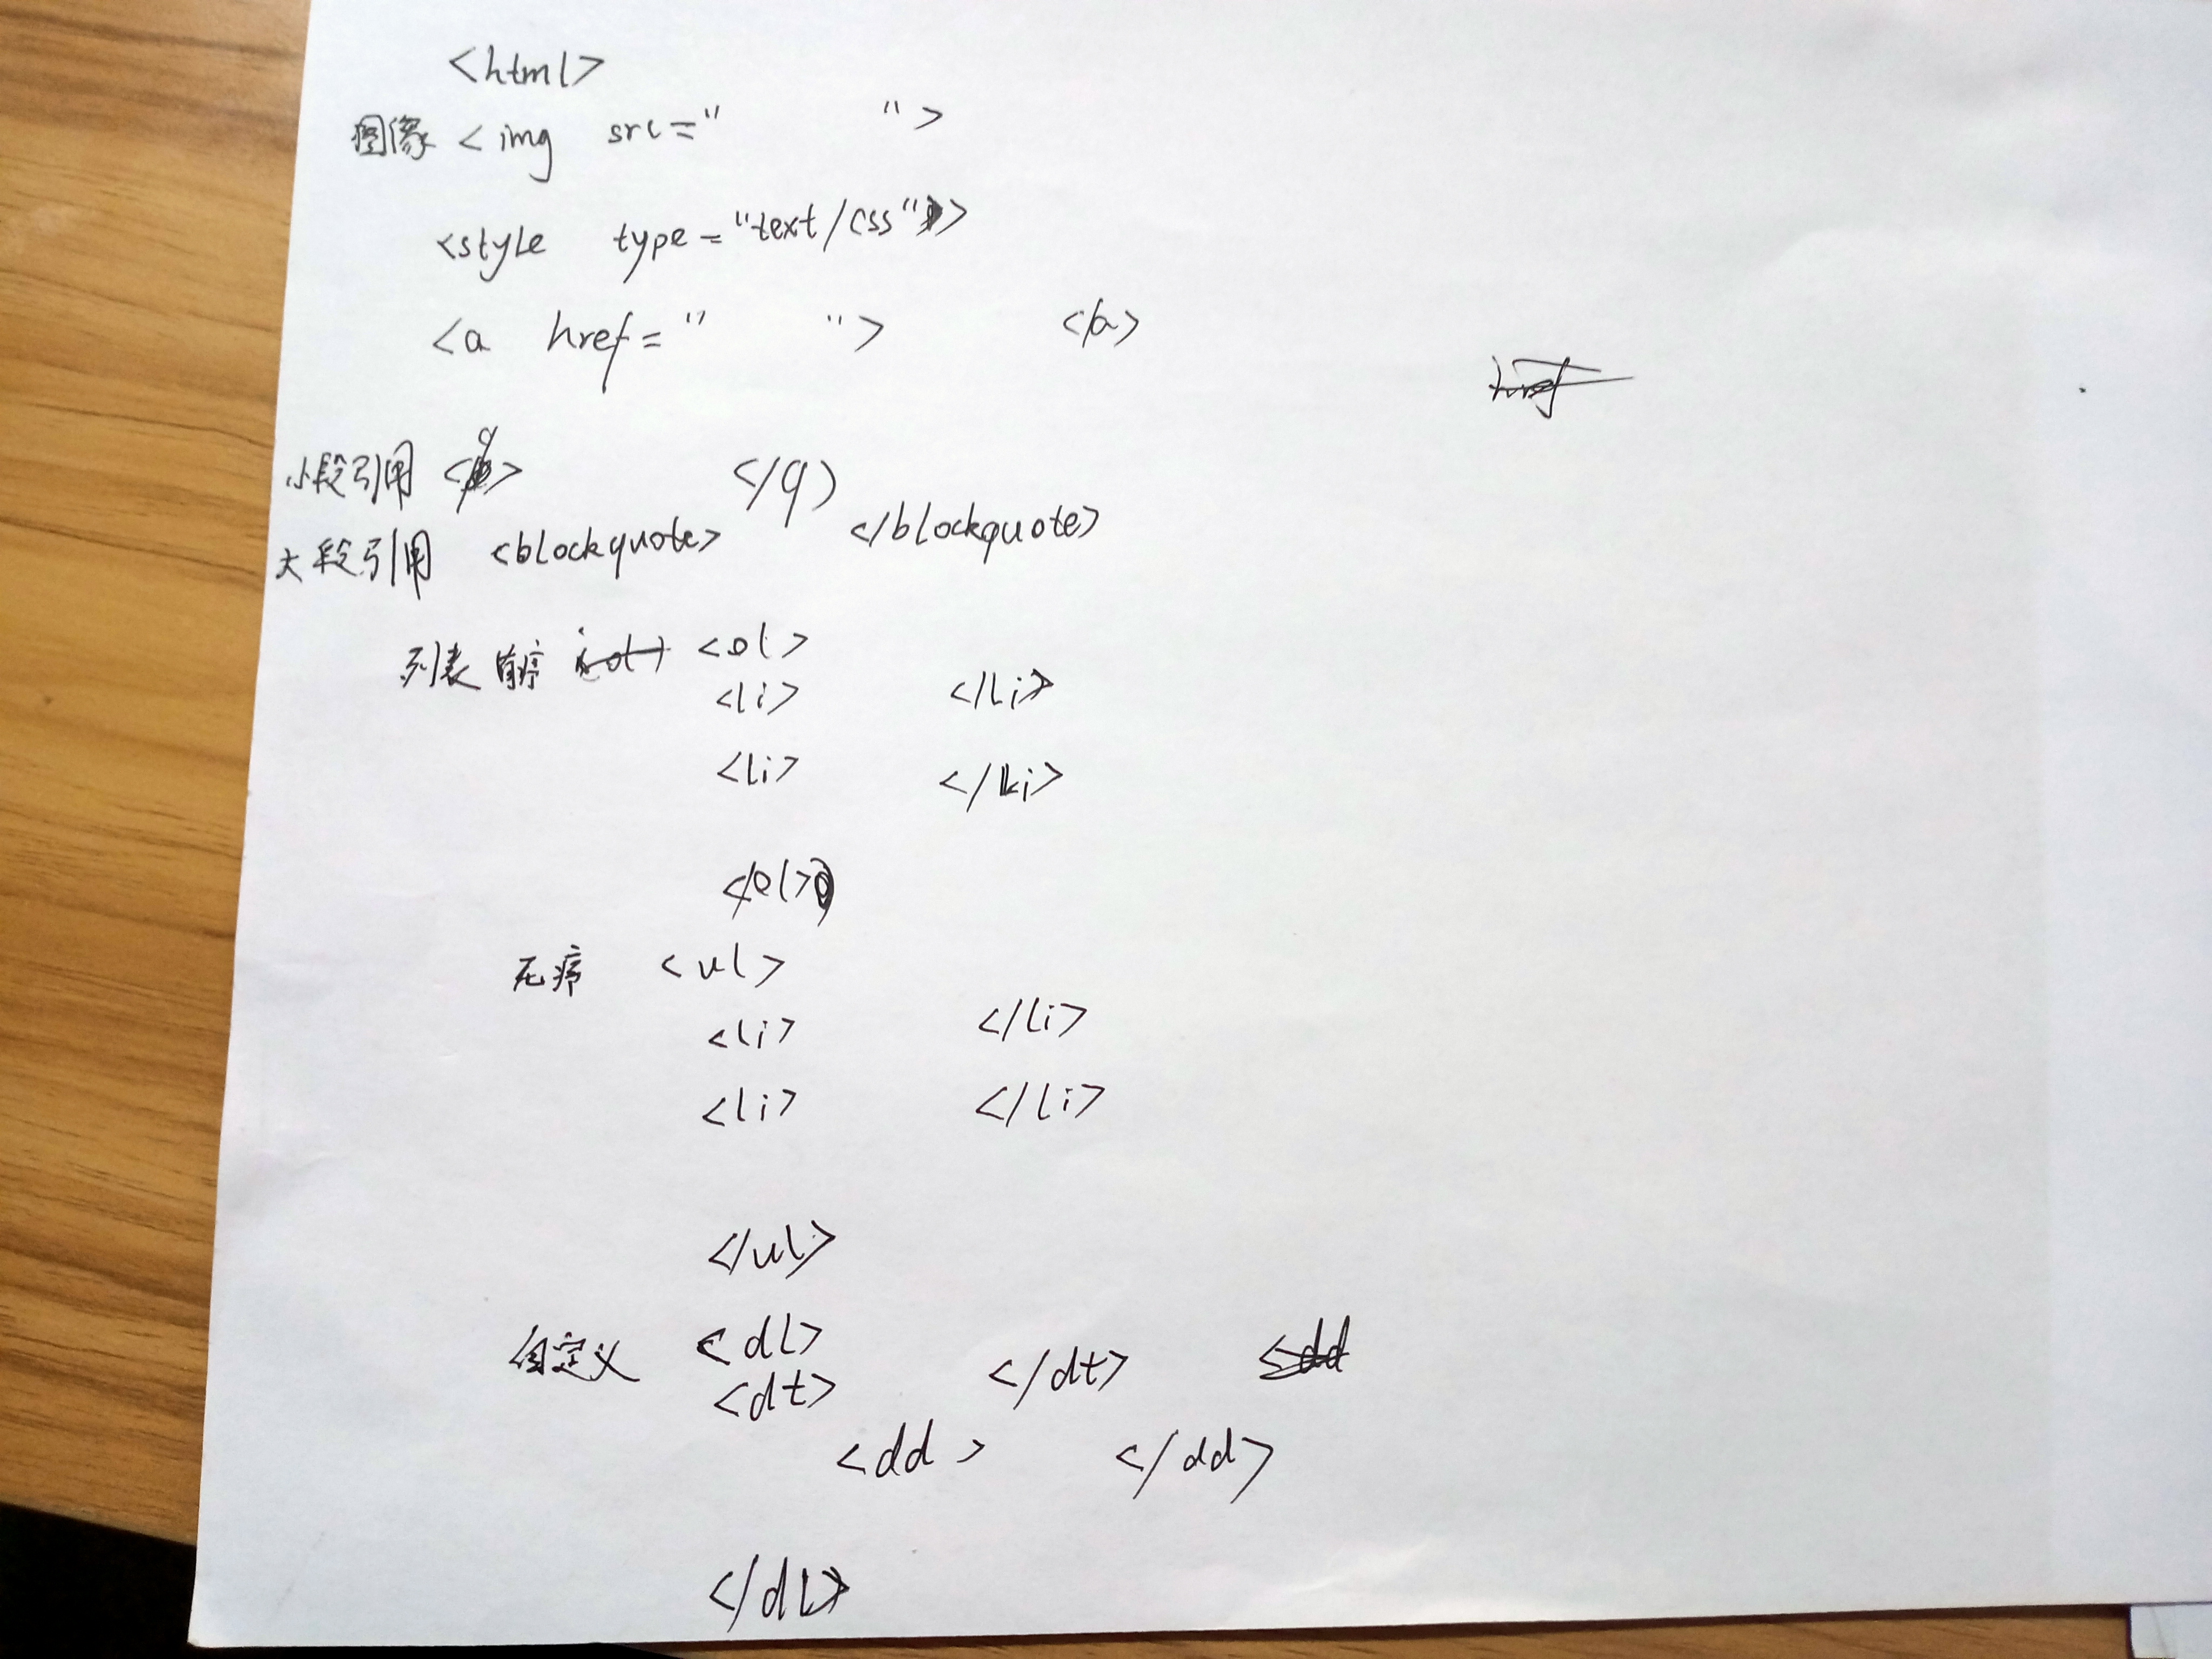 <html>
图像 <img src=" ">
<style type="text/css">
<a href=" "> </a>
href
小段引用 <q> </q)
大段引用 <blockquote> </blockquote>
列表 有序 <ol>
<li> </li>
<li> </li>
</ol>
无序 <ul>
<li> </li>
<li> </li>
</ul>
自定义 <dl>
<dt> </dt> <dd
<dd> </dd>
</dl>